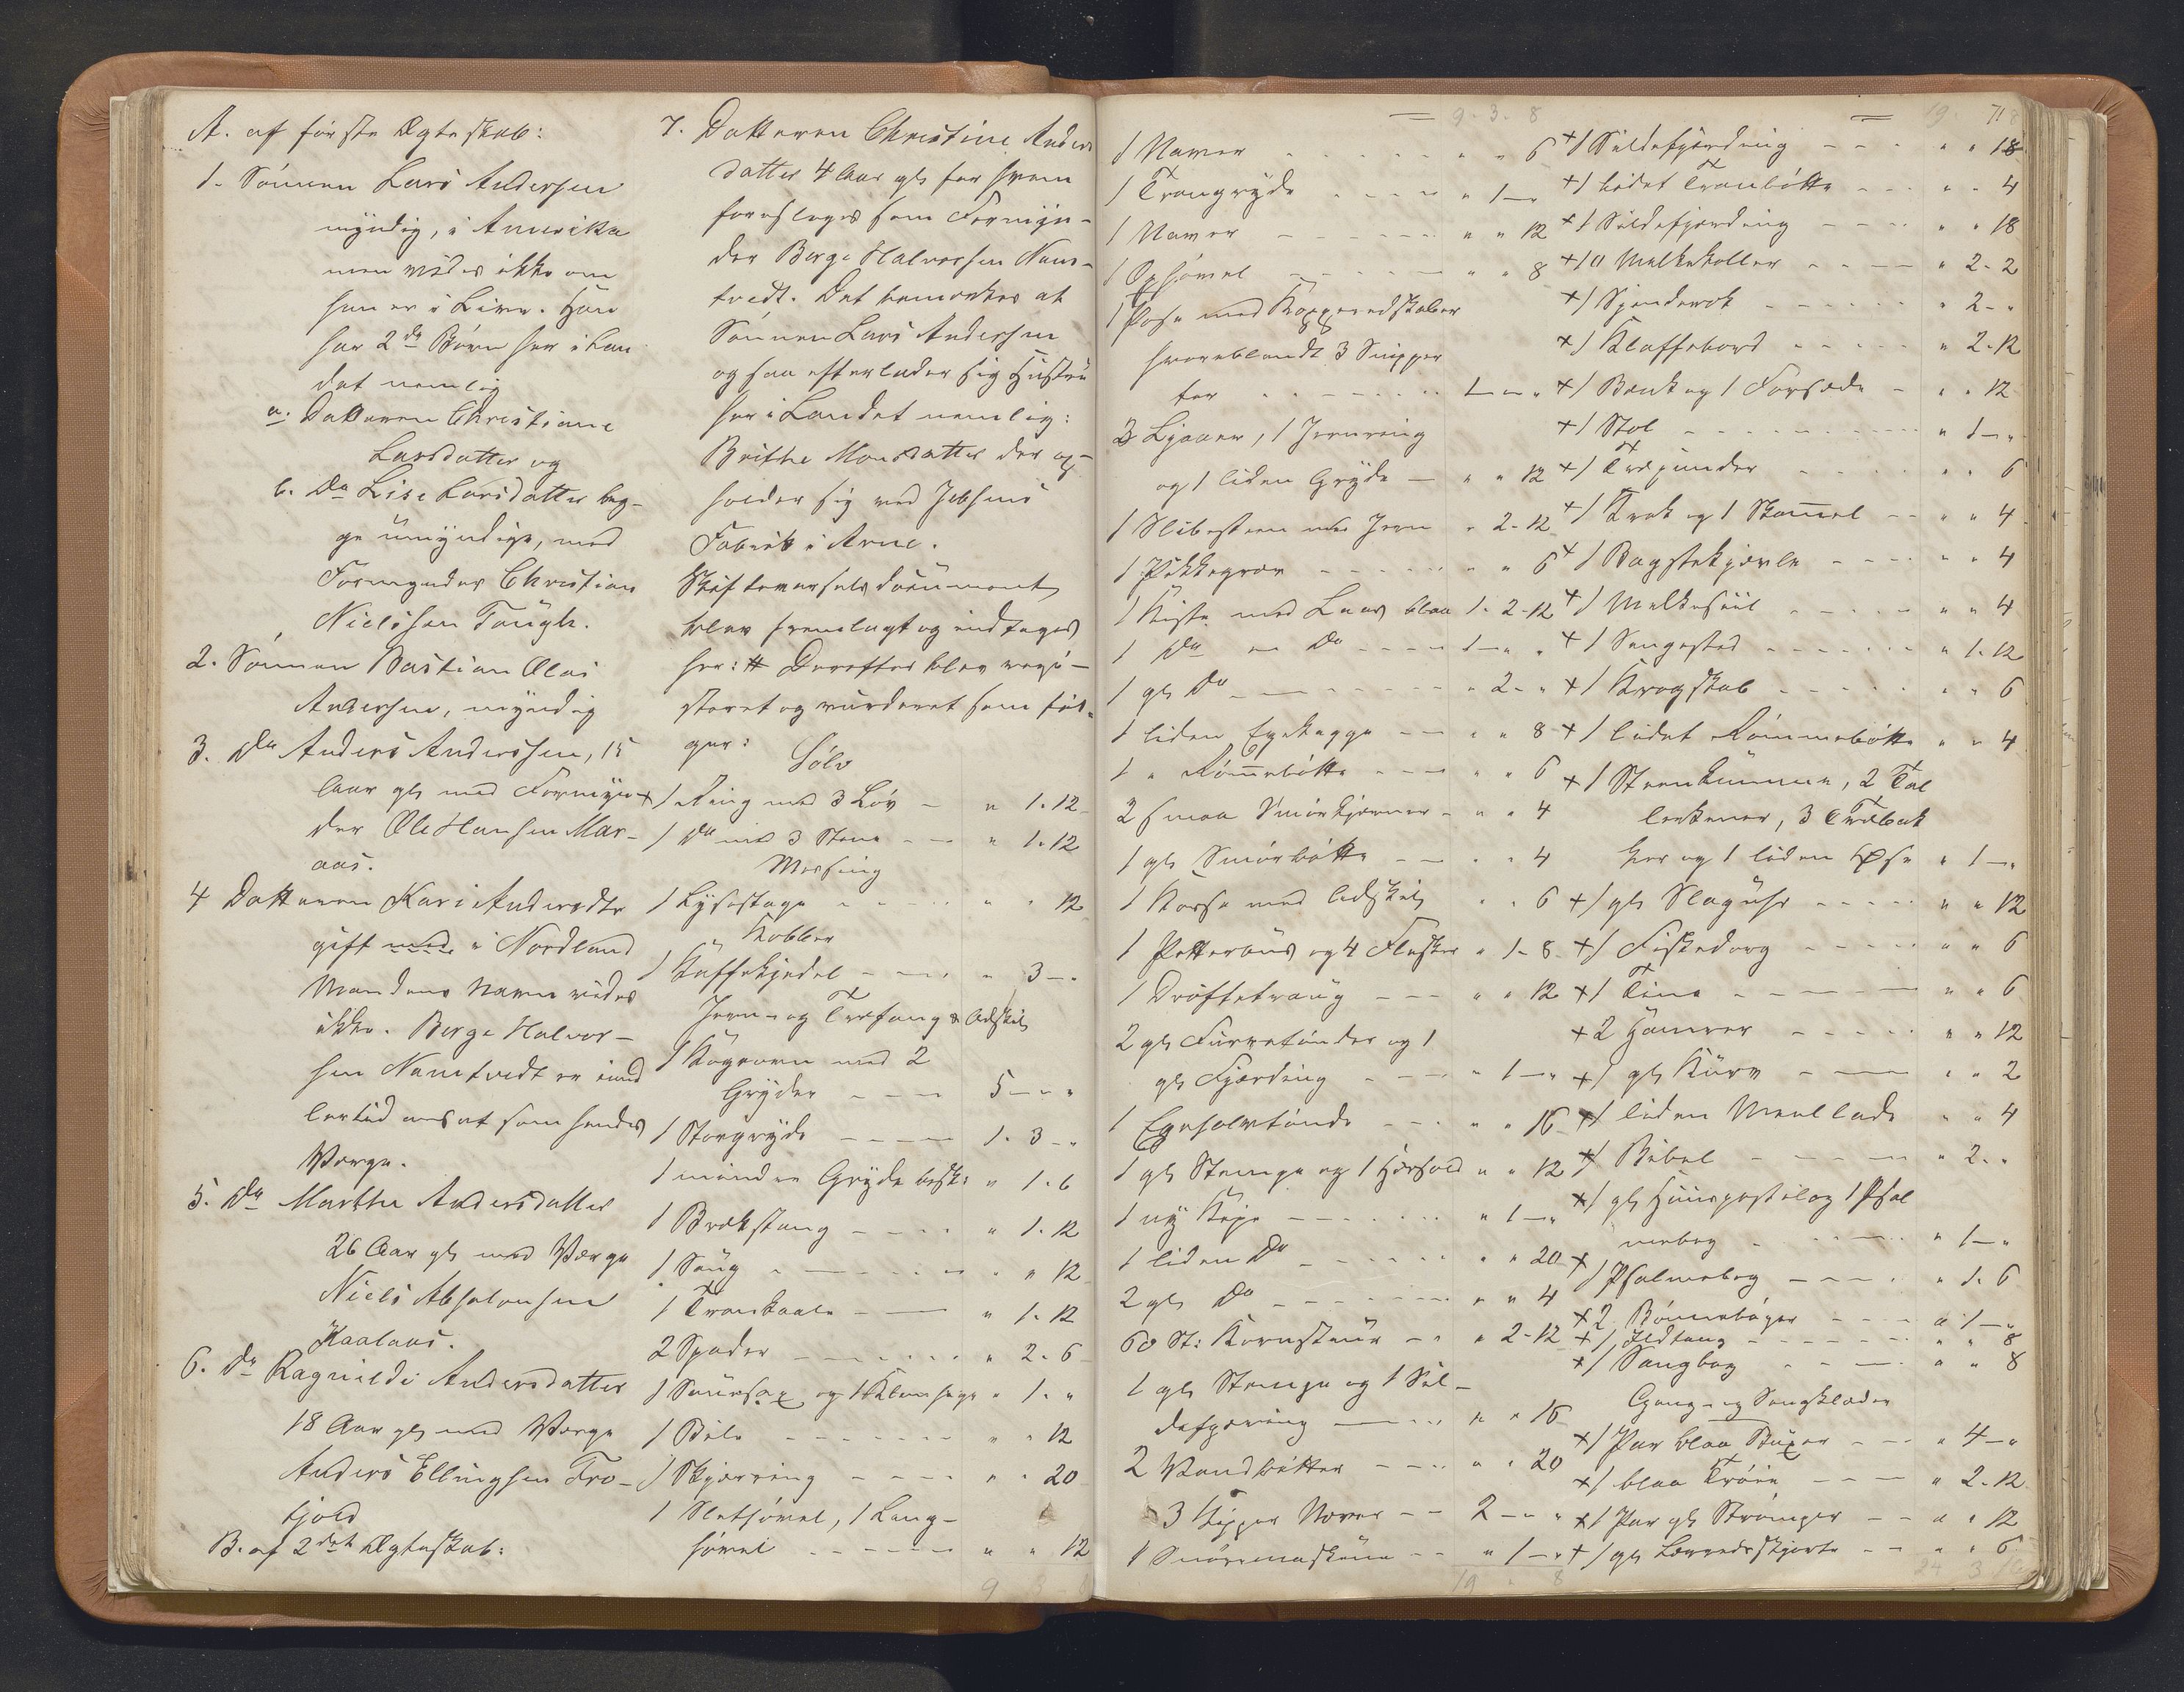 A. af første Ægteskab:
1. Sønnen Lars Andersen
myndig, i Amerika
men vides ikke om
han er i Live. Han
har 2de Børn her i Lan
det nemlig
a. Datteren Christiane
Larsdatter og
b. Do Lise Larsdatter beg-
ge umyndige, med
Formynder Christian
Nielssen Tough.
2. Sønnen Bastian Olai
Andersen, myndig
3. Do Anders Anderssen, 15
Aar gl med Formyn-
der Ole Hansen Mar-
aas.
4 Datteren Kari Andersdtr
gift med i Nordland
Mandens Navn vides
ikke. Berge Halvor-
sen Namtvedt er imid
lertid ansat som hendes
Værge.
5. Do Marthe Andersdatter
26 Aar gl med Værge
Niels Absalonsen
Haalaas.
6. Do Ragnilde Andersdatter
18 Aar gl med Værge
Anders Ellingsen Tro-
fjold
B. af 2det Ægteskab:
7. Datteren Christine Anders
datter 4 Aar gl for hvem
foreslages som Formyn-
der Berge Halvorsen Nam-
tvedt. Det bemærkes at
Sønnen Lars Andersen
ogsaa efterlader sig Hustru
her i Landet nemlig:
Brithe Monsdatter der op-
holder sig ved Jebsens
Fabrik i Arne.
document
blev fremlagt og indtages
her: # Derefter blev regi-
streret og vurderet som føl-
ger:
Sølv
+ 1 Ring med 3 Løv - " 1. 12
1 Do med 3 Stene - - " 1. 12
Messing
1 Lysestage - - - " " 12
Kobber
1 Kaffekjedel - - - " 3 - "
Jern- og Træfang & Adskil
1 Kogeovn med 2
Gryder - - - 5 - - "
1 Storgryde - - - 1. 3 - "
1 mindre Gryde besk: " 1. 6
1 Brækstang - - - " 1. 12
1 Saug - - - " " 12
1 - - " 1. 12
2 Spader - - - " 2. 6
1 Sauesax og 1 " 1. "
1 Bile - - - " " 12
1 Skjæreving - - - " " 20
1 Slethøvel, 1 Lang-
høvel - - - " " 12
9 3 8
= 9. 3. 8
1 Naver - - - " " 6
1 Trangryde - - - " 1 - "
1 Naver - - - " " 12
1 - - - " " 8
1 Pose med Kopperedskaber
hvoriblandt 3 Snipper
ter - - - 1 - - "
3 Ljaaer, 1 Jernring
og 1 liden Gryde - " " 12
1 Slibesteen med Jern " 2. 12
1 - - - " " 6
1 Kiste med Laas blaa 1. 2. 12
1 Do - Do - - - 1 - " "
1 gl Do - - - " 2. "
1 liden Egekagge - - " " 8
1 " Rømmebøtte - - - " " 6
2 smaa Smørkjerner - " " 4
1 gl Smørbøtte - - " " 4
1 Kasse med Adskil " " 6
1 og 4 Flasker " 1. 8
1 Drøftetraug - - - " " 12
2 gl Furretønder og 1
gl Fjærding - - - " 1 - "
1 - - " " 16
1 gl Stampe og 1 " " 12
1 ny Kipe - - - " 1 - "
1 liden Do - - - " " 20
2 gl Do - - - " " 4
60 St: Kornstaur - - " 2. 12
1 gl Stampe og 1 Sil-
defjerding - - - " " 16
2 Vandbøtter - - - " " 20
3 Næver - - 2 - - "
1 - - " 1 - "
19 " 8
= 19. 718
+ 1 Sildefjerding - - - " " 18
+ 1 lidet Tranbøtte - - - " " 4
+ 1 Sildefjerding - - - " " 18
+ 10 Melkekoller - - - " 2. 2
+ 1 Spinderok - - - " 2. "
+ 1 Klaffebord - - - " 2. 12
+ 1 Bænk og 1 Forsæde - " " 12
+ 1 Stol - - - " 1 - "
+ 1 - - - " " 6
+ 1 Krak og 1 Skammel - - " " 4
+ 1 Bagstekjævle - - - " " 4
+ 1 Melkesiil - - - " " 4
+ 1 Sengested - - - " 1. 12
+ 1 Krogskab - - - " " 6
+ 1 lidet Rømmebøtte " " 4
+ 1 Steenkumme, 2 Tal
lerkener, 3 Træbak
ker og 1 liden Øse " 1 - "
+ 1 gl Slaguhr - - - " " 12
+ 1 Fiskedorg - - - " " 6
+ 1 Tine - - - " " 6
+ 2 Hamrer - - - " " 12
+ 1 gl Kurv - - - " " 2
+ 1 liden Meellade " " 4
+ 1 Bibel - - - " 2. "
+ 1 gl Huuspostil og 1 Psal
mebog - - - " 1 - "
+ 1 Psalmebog - - - " 1. 6
+ 2 Bønnebøger - - - " 1 - "
+ 1 Ildtang - - - " " 8
+ 1 Sangbog - - - " " 8
Gang- og Sengklæder
+ 1 Par blaa Buxer - - - " 4 - "
+ 1 blaa Trøie - - - " 2. 12
+ 1 Par gl Strømper - - " " 12
+ 1 gl Lærredsskjorte - - " " 6
24 3